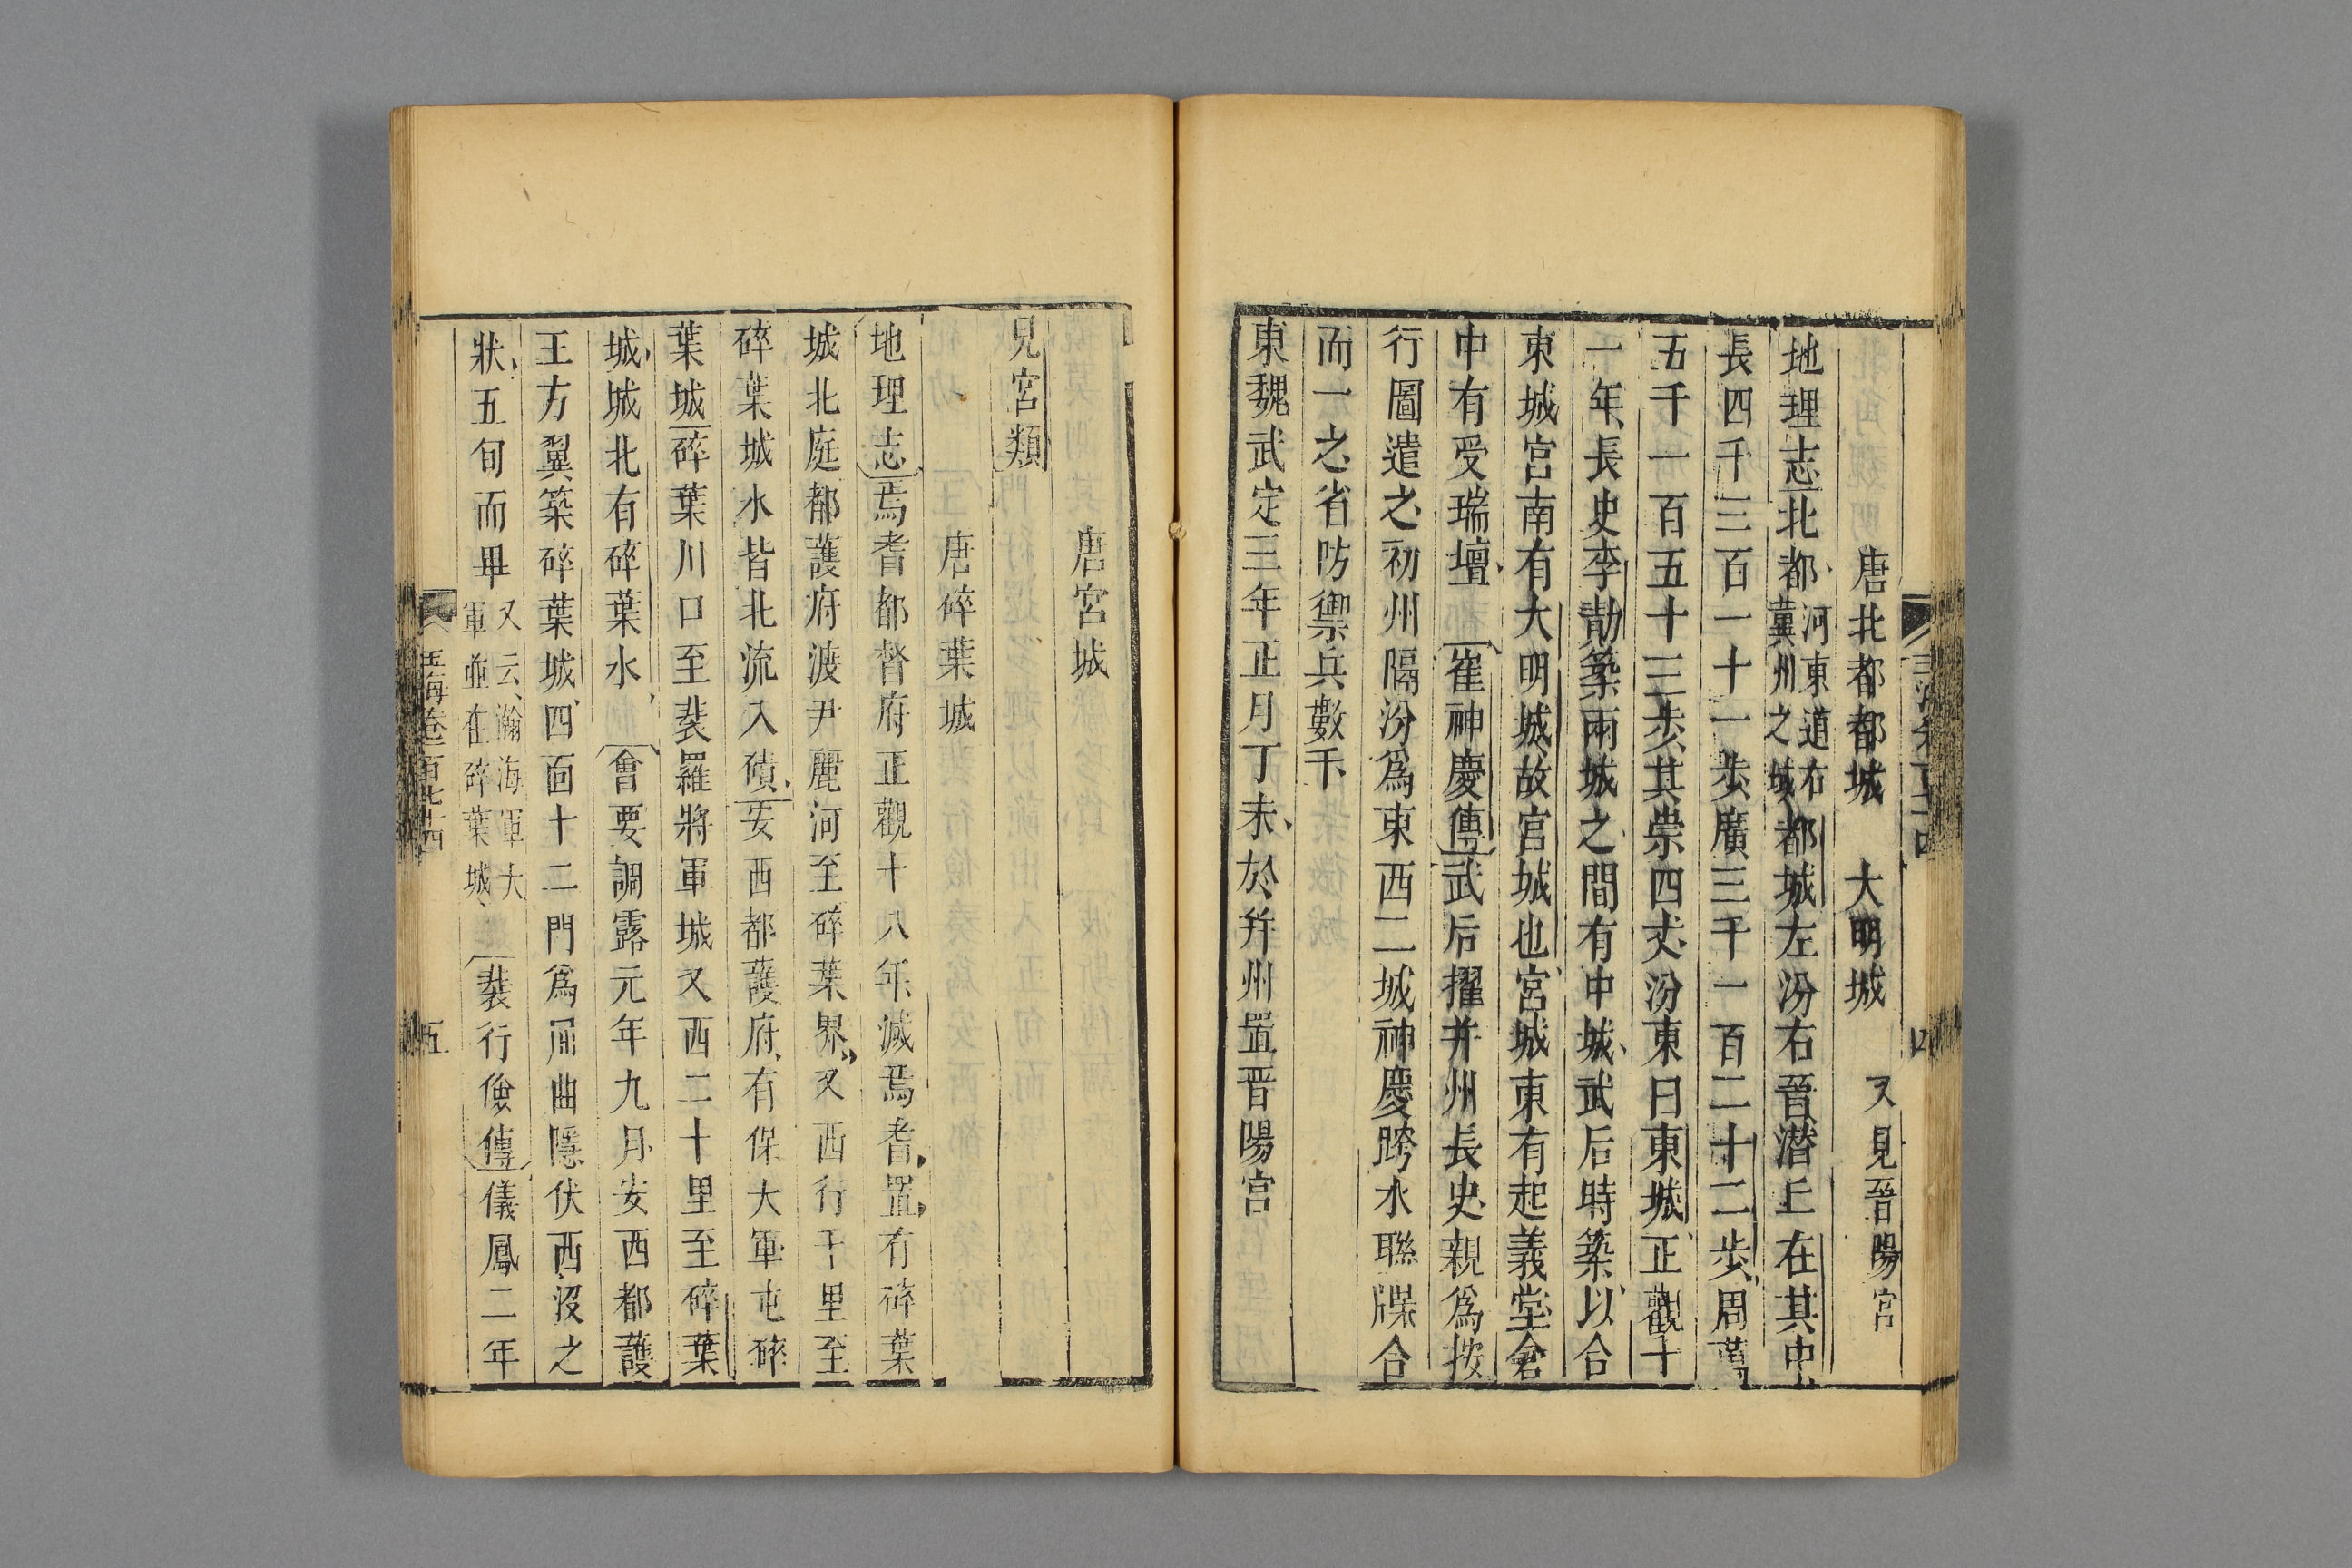 唐北都都城　大明城　又見晉陽宮
地理志北都河東道右冀州之域都城左汾右晉潛丘在其中
長四千三百一十一步廣三千一百二十二步周萬
五千一百五十三步其崇四丈汾東曰東城正觀十
一年長史李勣築兩城之間有中城武后時築以合
東城宮南有大明城故宮城也宮城東有起義堂倉
中有受瑞壇崔神慶傳武后擢并州長史親爲按
行圖遣之初州隔汾爲東西二城神慶跨水聯牒合
而一之省防禦兵數千
東魏武定三年正月丁未於并州置晋陽宮
唐宮城
見宮類
唐碎葉城
地理志焉耆都督府正觀十八年滅焉耆置有碎葉
城北庭都護府渡尹麗河至碎葉界又西行千里至
碎葉城水皆北流入磧安西都護府有保大軍屯碎
葉城碎葉川口至裴羅將軍城又西二十里至碎葉
城城北有碎葉水會要調露元年九月安西都護
王方翼築碎葉城四面十二門爲屈曲隱伏西沒之
狀五旬而畢又云瀚海軍大軍並在碎葉城裴行儉傳儀鳳二年
玉海卷一百七十四　五